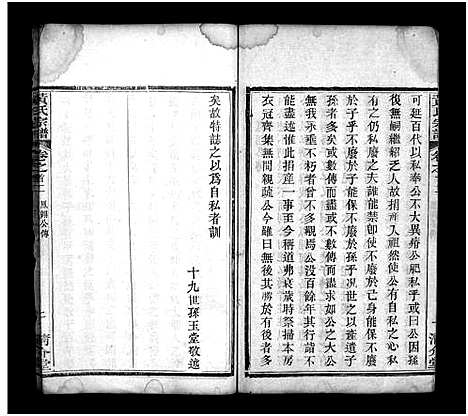 可延百代以私奉公不大異瘠公肥私乎或曰公因孫
無嗣繼紹乏人故捐產入祖然使公有自利之私心復
有之仍私廢之夫誰能禁即使不廢於公之身或廢於
子即能不廢於子能保不廢於孫乎况世之以產遺子
孫者多矣或數傳而盡或不數傳而盡求如公之大公
無我曾不多觀焉公没百餘年其行諧不能與
能盡述此捐產一事至今稱道弗衰歲時祭掃本房
衣冠齊集無間親疏公今雖曰無後然有後者多
矣故特誌之以為自私者訓
十九世孫玉堂敬述
黃氏宗譜
卷之二
鳳翔公傳